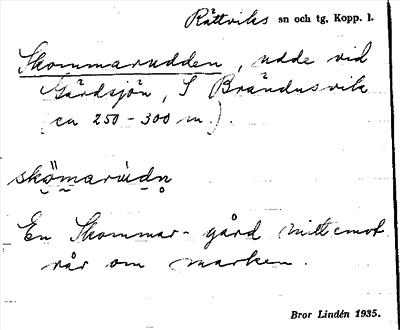 Rättviks sn och tg, Kopp. l.
Skommarudden, udde vid
Gärdsjön, S Brändusvik
(ca 250-300 m.).
skömarùdn
En Skommar-gård mittemot
rår om marken.
Bror Lindén 1935.